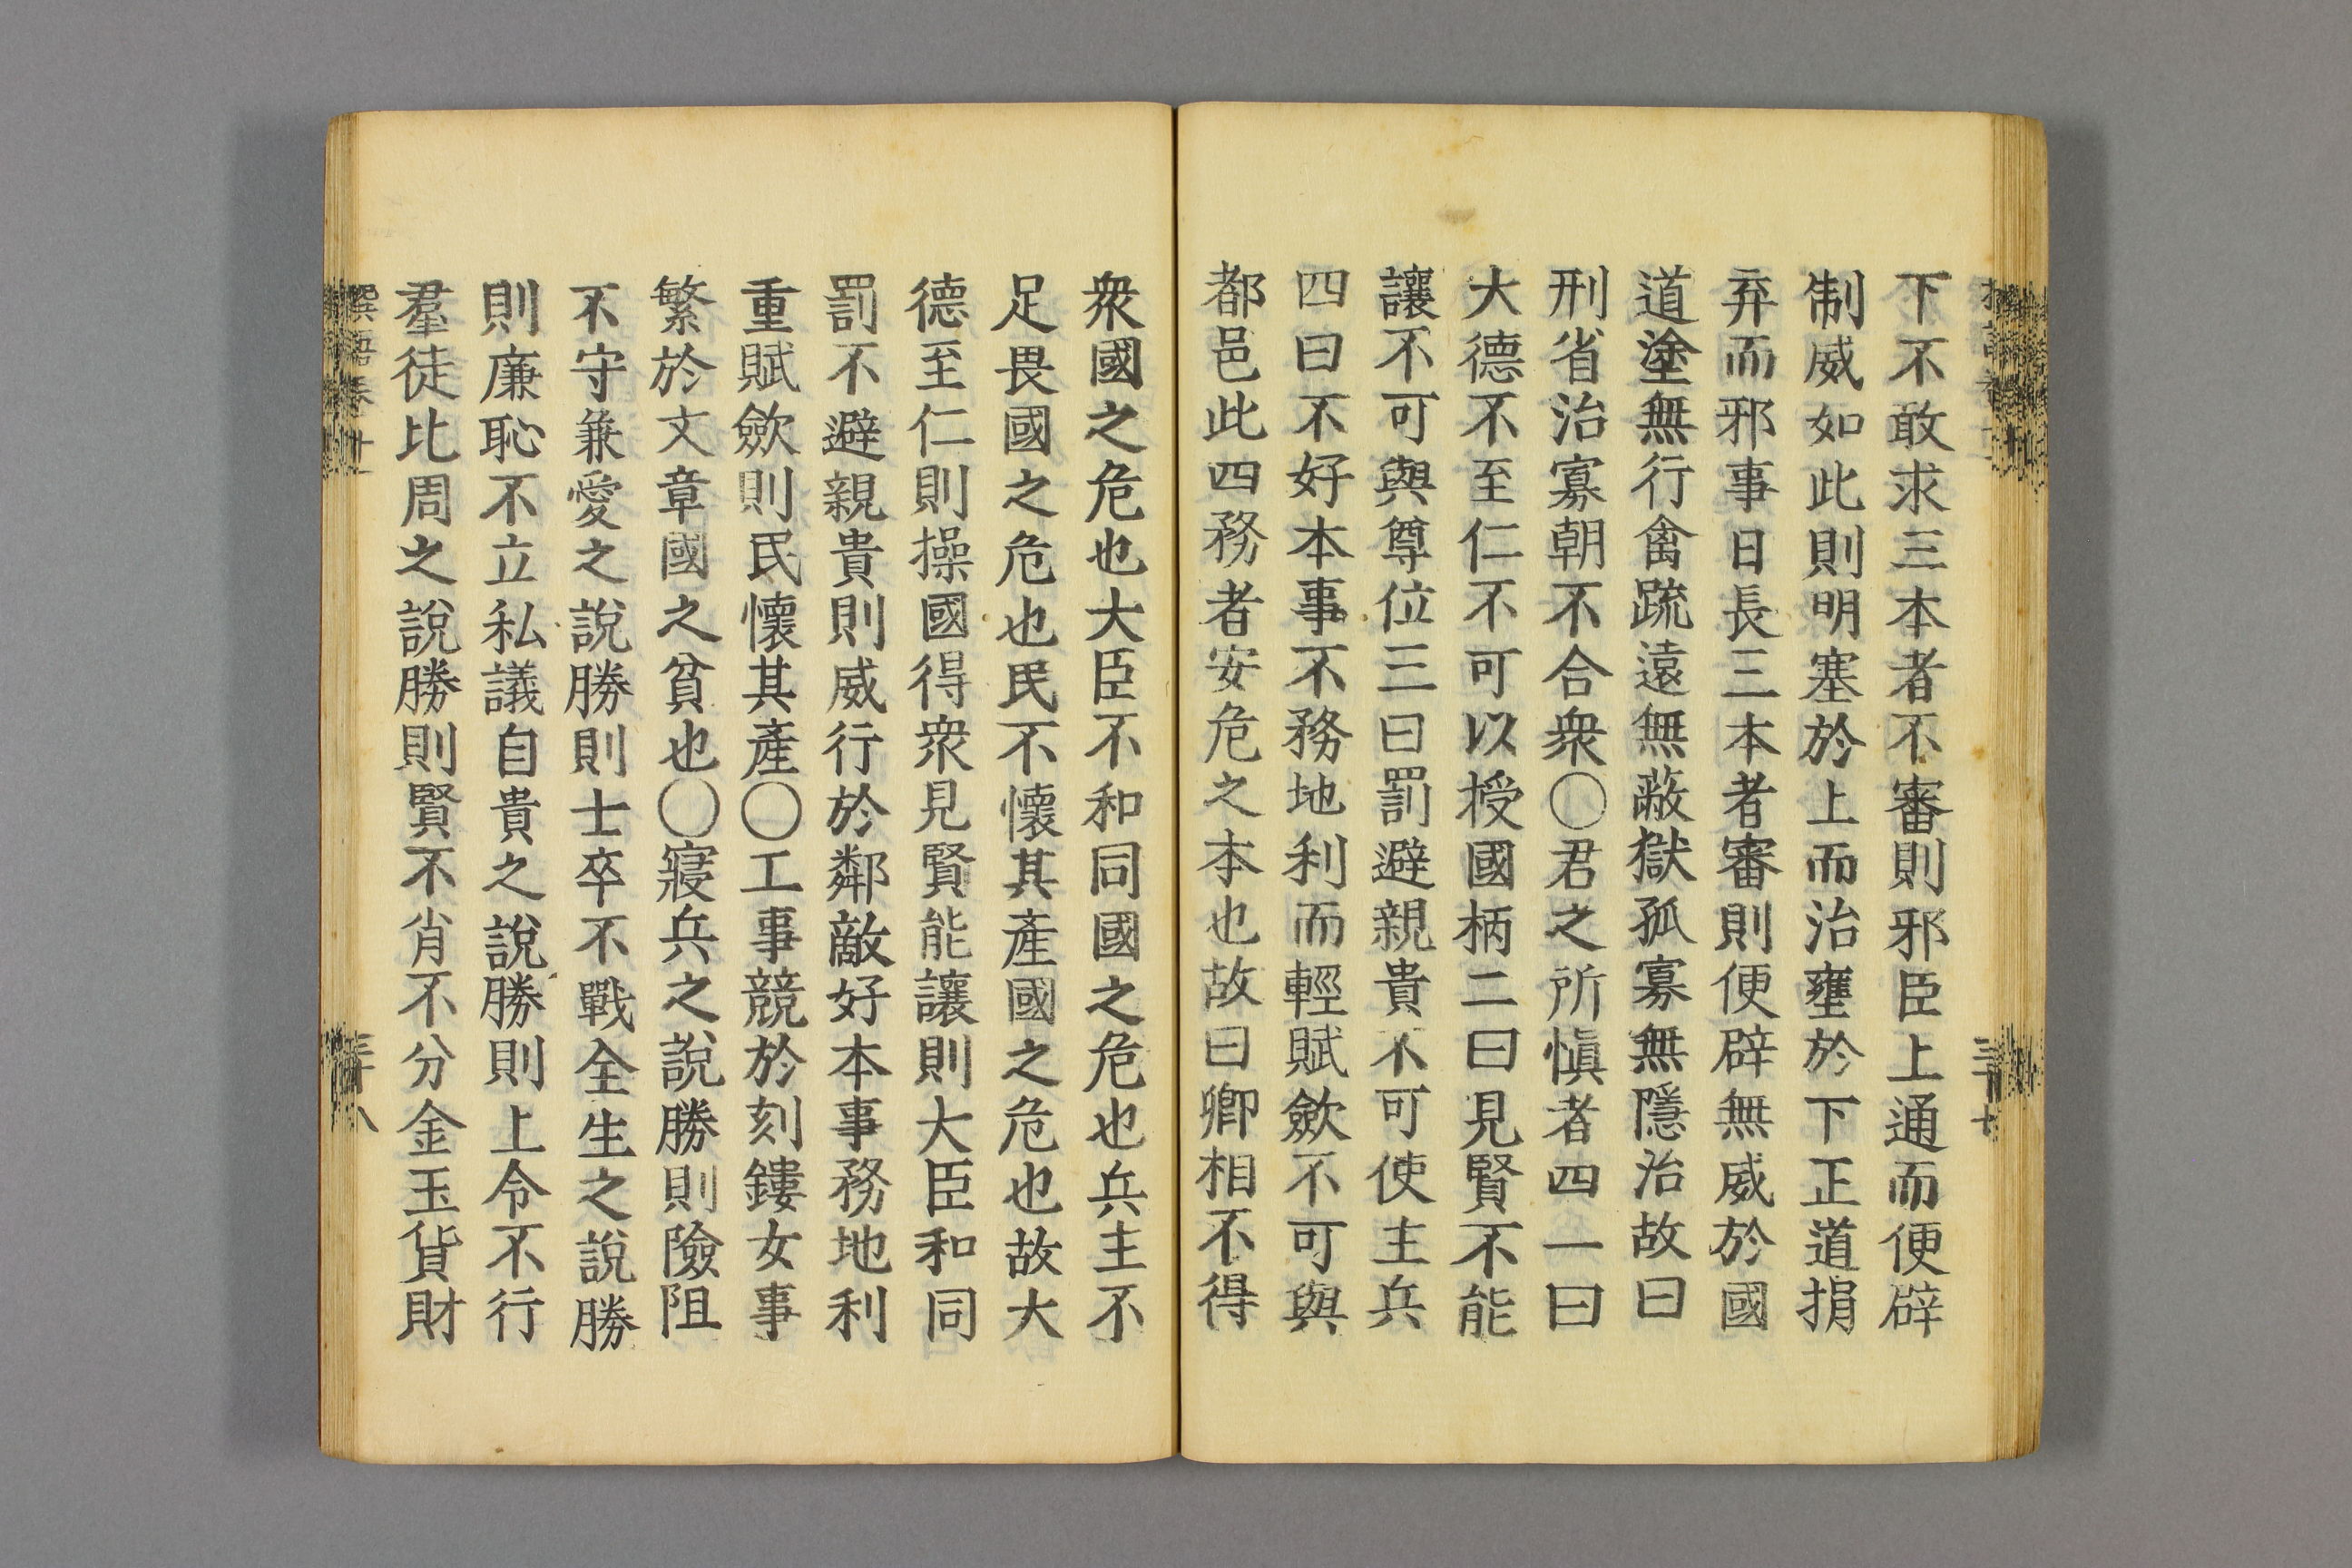 下不敢求三本者不審則邪臣上通而便辟
制威如此則明塞於上而治壅於下正道捐
弃而邪事日長三本者審則便辟無威於國
道塗無行禽疏遠無蔽獄孤寡無隱治故曰
刑省治寡朝不合衆○君之所愼者四一曰
大德不至仁不可以授國柄二曰見賢不能
讓不可與尊位三曰罰避親貴不可使主兵
四曰不好本事不務地利而輕賦斂不可與
都邑此四務者安危之本也故曰卿相不得
衆國之危也大臣不和同國之危也兵主不
足畏國之危也民不懷其產國之危也故大
德至仁則操國得衆見賢能讓則大臣和同
罰不避親貴則威行於鄰敵好本事務地利
重賦斂則民懷其產○工事競於刻鏤女事
繁於文章國之貧也○寢兵之說勝則險阻
不守兼愛之說勝則士卒不戰全生之說勝
則廉恥不立私議自貴之說勝則上令不行
羣徒比周之說勝則賢不肖不分金玉貨財